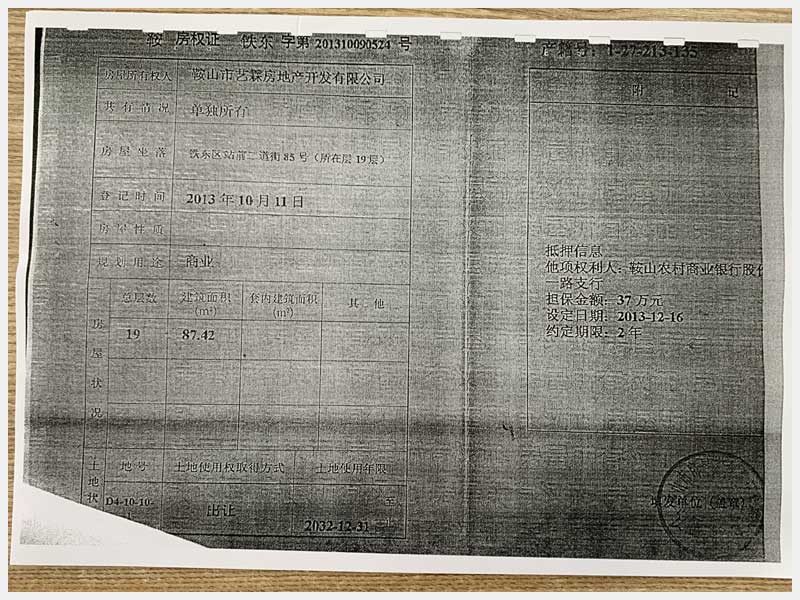 鞍 房权证 铁东 字第 201310090524 号
房屋所有权人 鞍山市艺霖房地产开发有限公司
共有情况 单独所有
房屋坐落 铁东区站前二道街 85 号（所在层 19 层）
登记时间 2013 年 10 月 11 日
房屋性质
规划用途 商业
房屋状况
总层数 建筑面积（m²） 套内建筑面积（m²） 其他
19 87.42
土地状
地号 土地使用权取得方式 土地使用年限
D4-10-10- 出让 至
2032-12-31
产籍号：1-27-213-135
附 记
抵押信息
他项权利人：鞍山农村商业银行股份
一路支行
担保金额：37 万元
设定日期：2013-12-16
约定期限：2 年
填发单位（盖章）